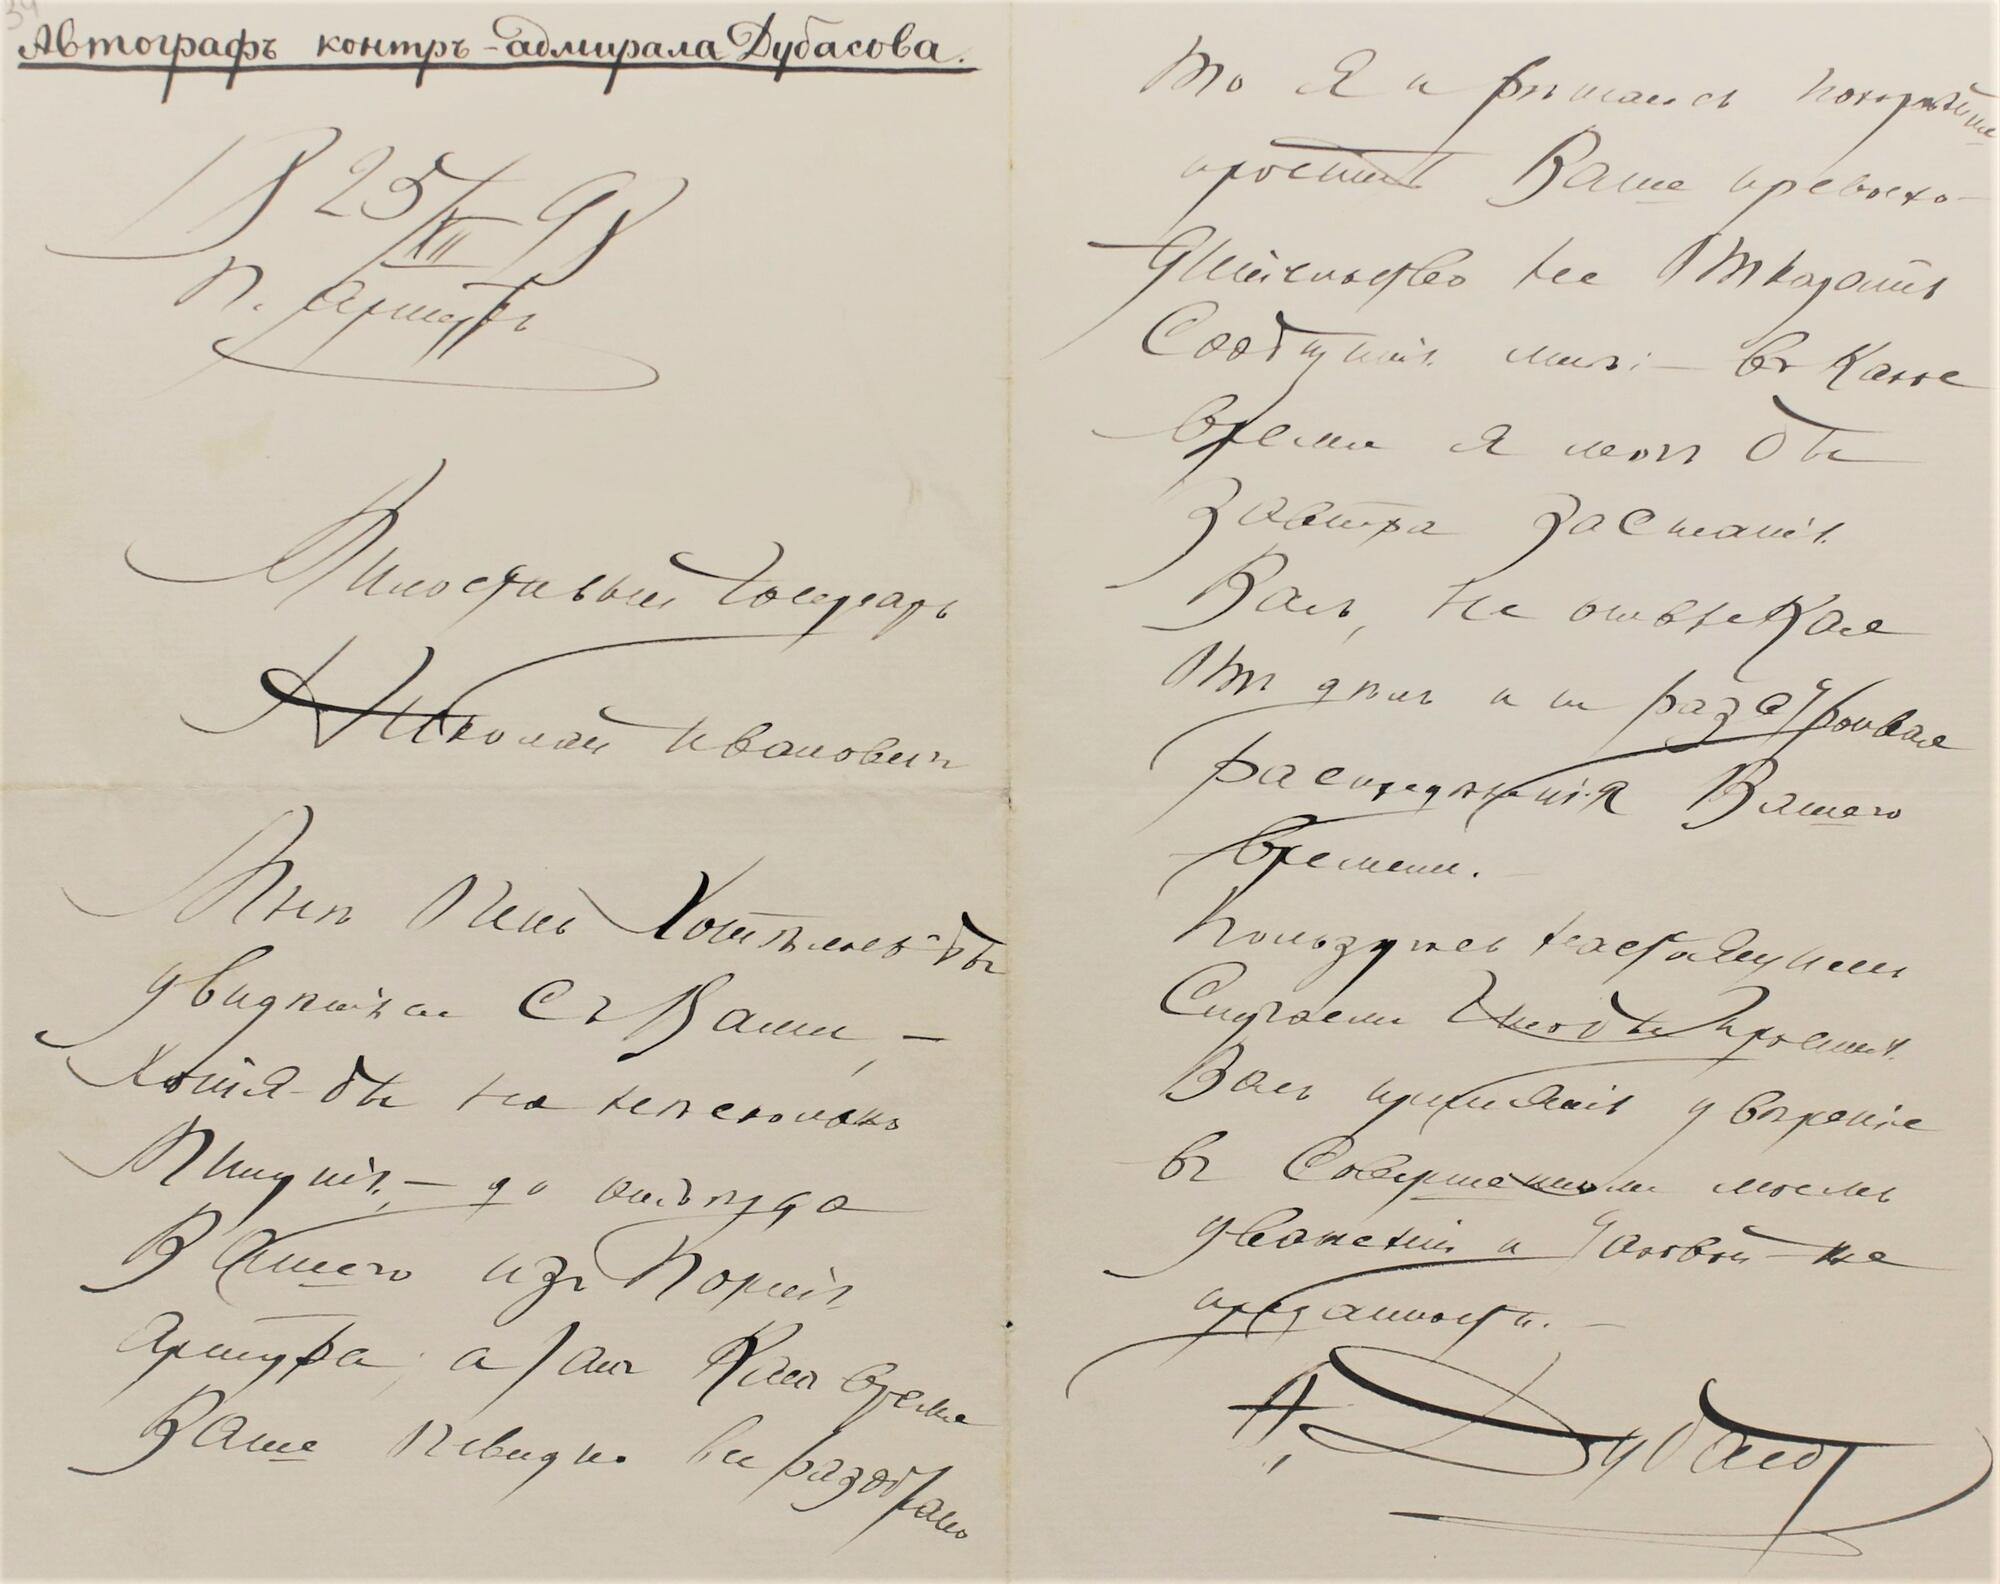 Автографъ контръ-адмирала Дубасова.
18 25/XII 98
П. Артуръ
Милостивый Государь
Николай Ивановичъ
Мнѣ очень хотѣлось-бы
увидѣться съ Вами, –
хотя-бы на нѣсколько
минутъ, – до отъѣзда
Вашего изъ Портъ
Артура, а такъ какъ время
Ваше повидимо все разобрано
то я и рѣшаюсь покорнѣйше
просить Ваше превосхо-
дительство не отказать
сообщить мнѣ: – въ какое
время я могъ бы
завтра застать
Васъ, не отвлекая
отъ дѣлъ и не разстроивая
распредѣленія Вашего
времени. –
Пользуюсь настоящимъ
случаемъ чтобы просить
Васъ принять увѣреніе
въ совершенномъ моемъ
уваженіи и таковой-же
преданности. –
Ѳ. Дубасовъ